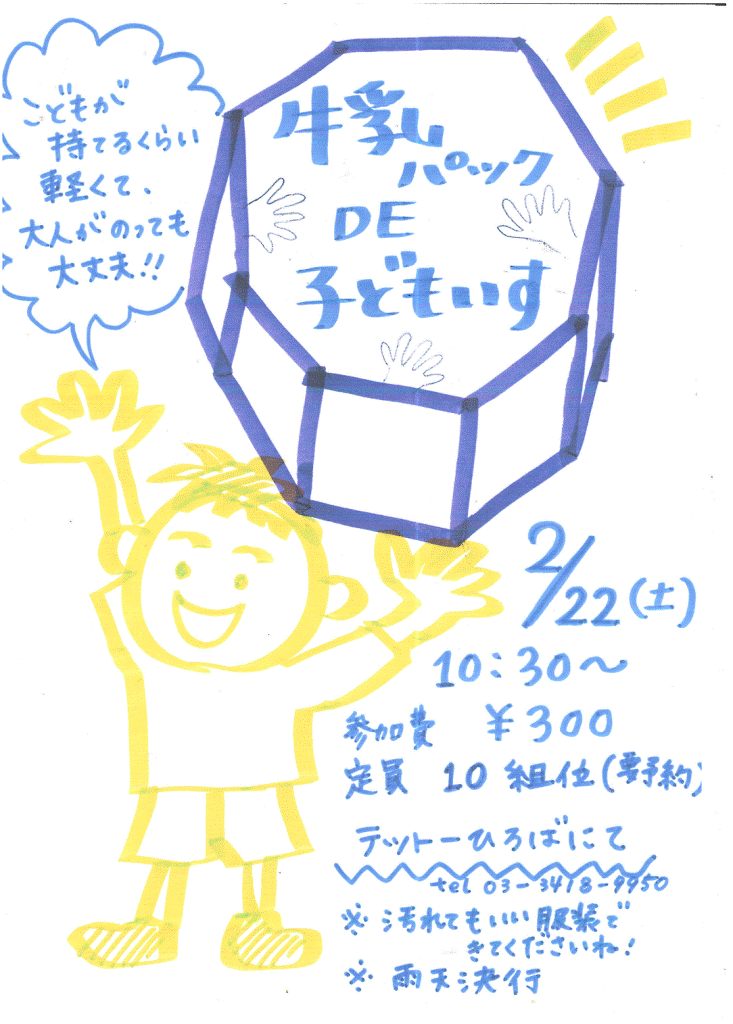 こどもが
持てるくらい
軽くて、
大人がのっても
大丈夫!!
牛乳
パック
DE
子どもいす
2/22(土)
10:30～
参加費 ¥300
定員 10組位(要予約)
テットーひろばにて
tel 03-3418-9950
※ 汚れてもいい服装で
きてくださいね!
※ 雨天決行